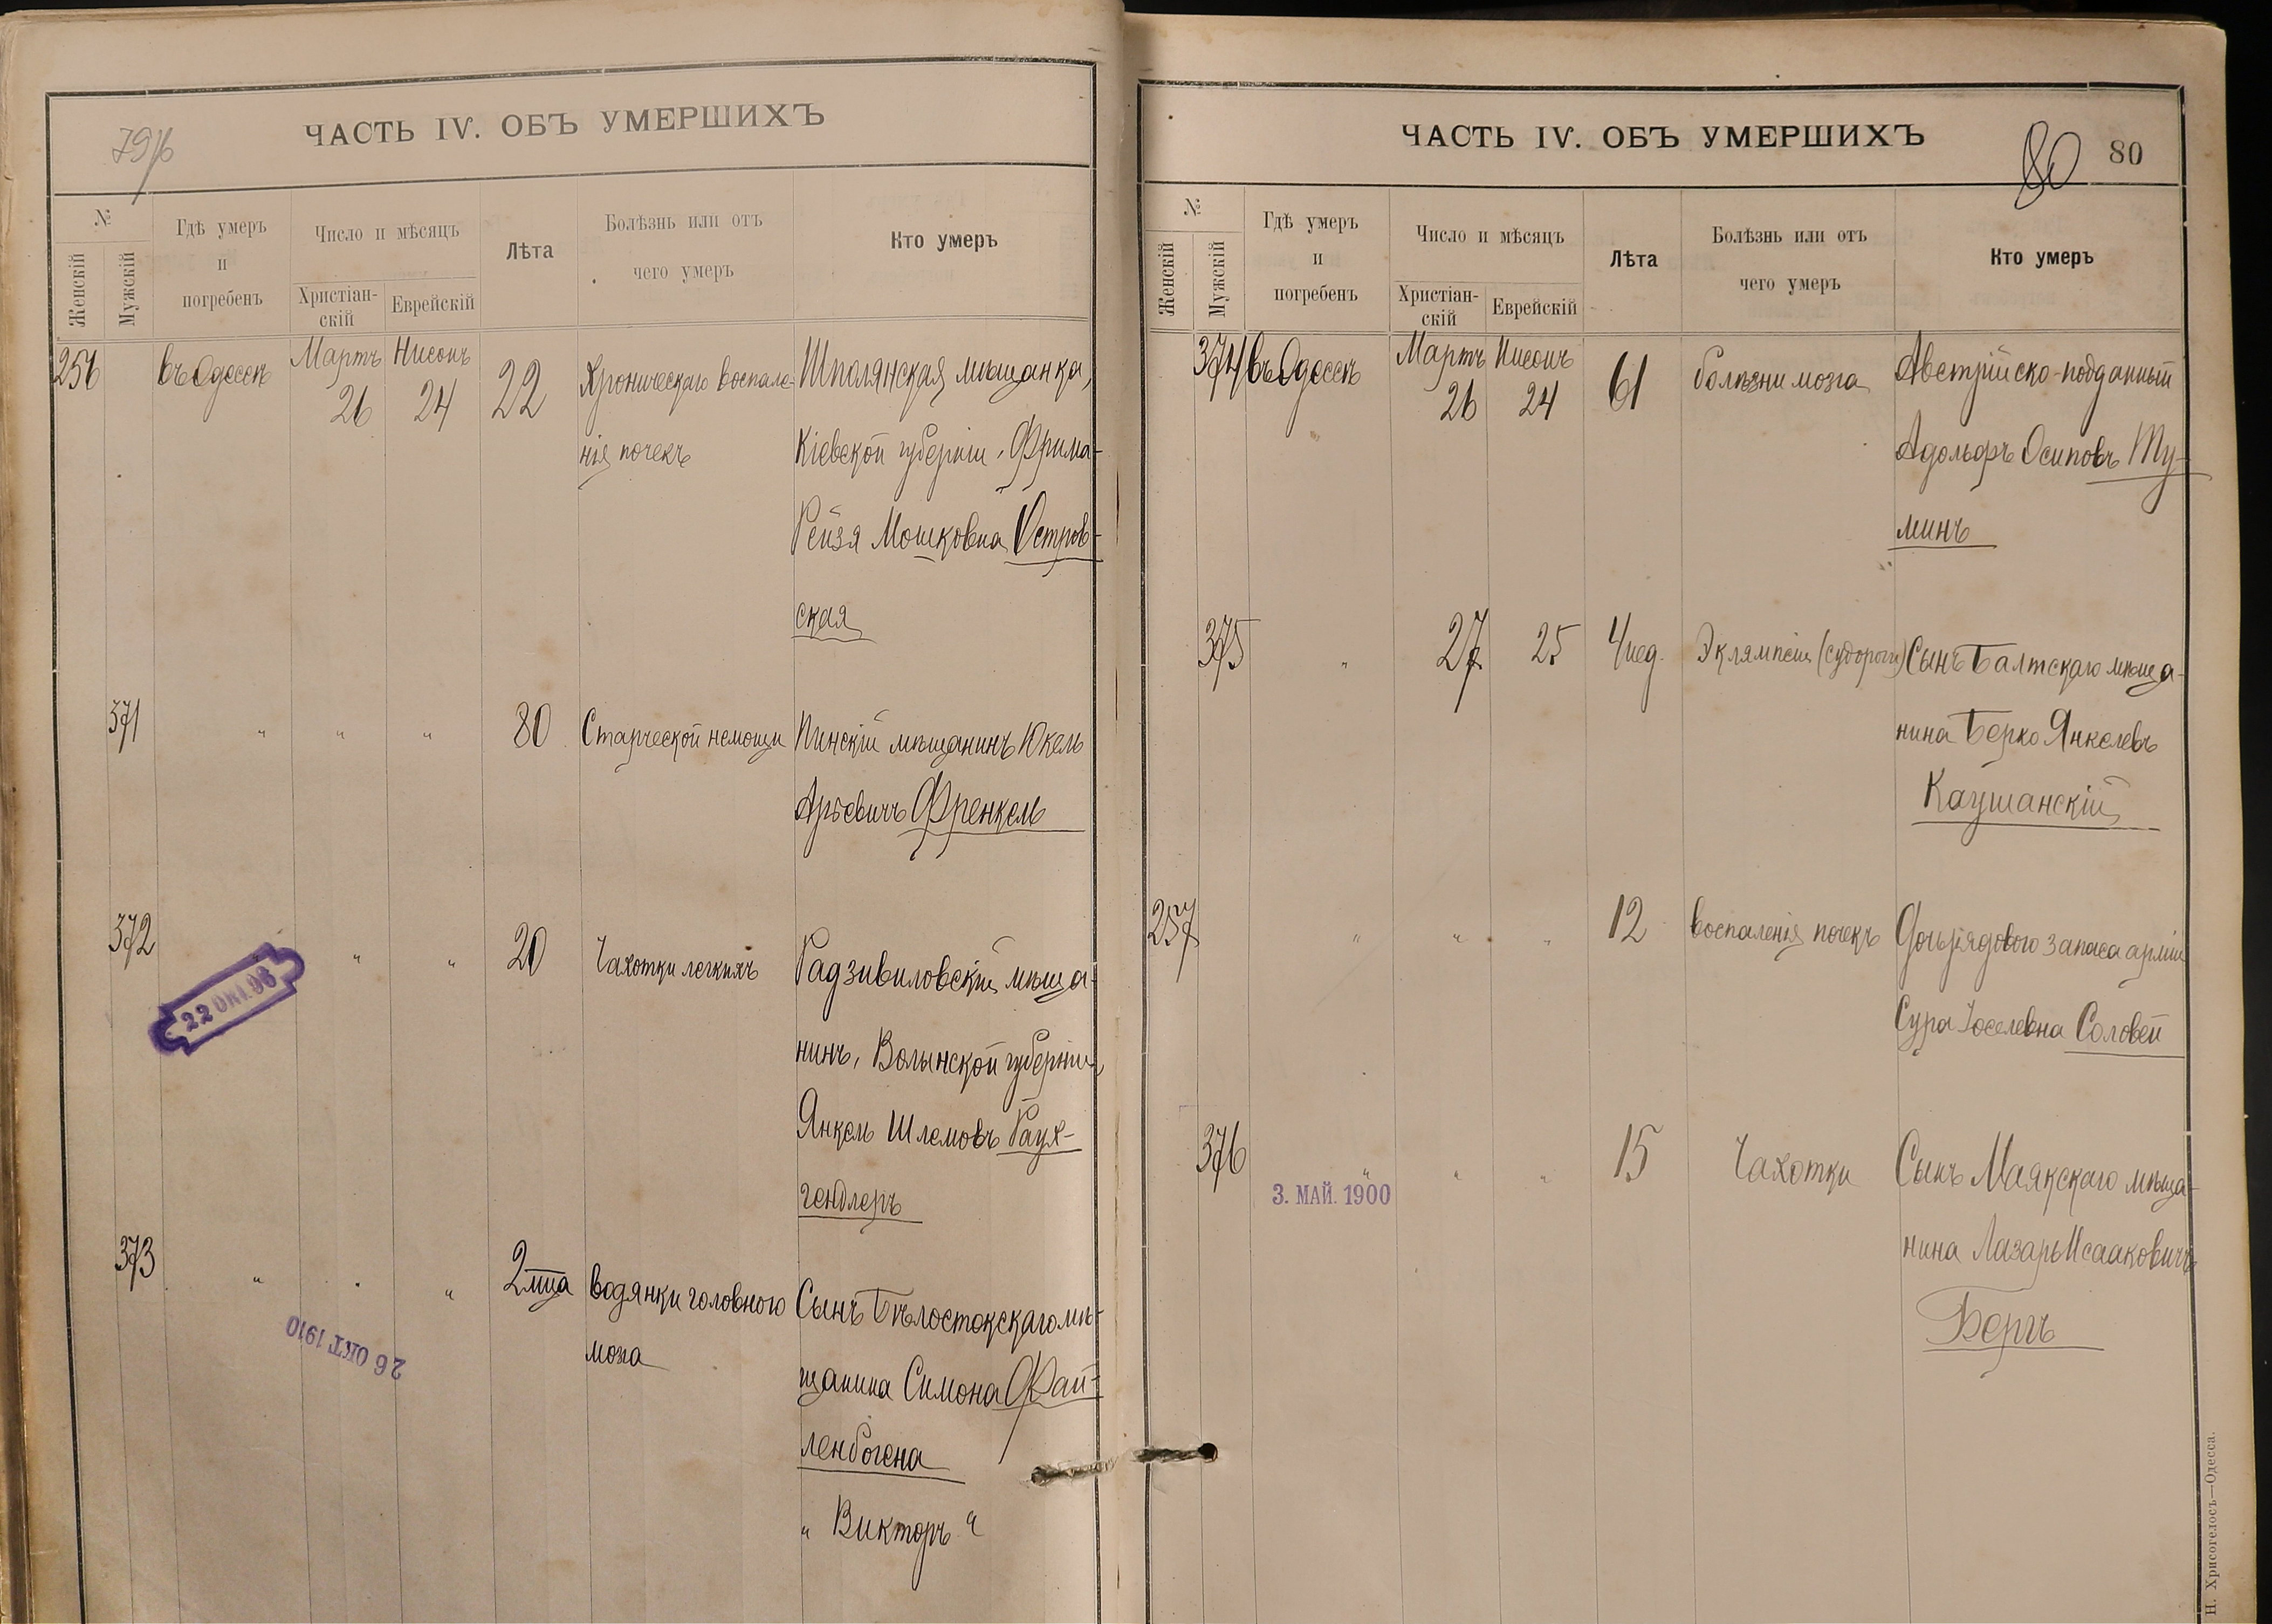 79 об
ЧАСТЬ IV. ОБЪ УМЕРШИХЪ
№
Женскій
Мужскій
Гдѣ умеръ
и
погребенъ
Число и мѣсяцъ
Христіан-
скій
Еврейскій
Лѣта
Болѣзнь или отъ
чего умеръ
Кто умеръ
256
въ Одессѣ
Мартъ
26
Нисонъ
24
22
Хроническаго воспале-
нія почекъ
Шполянская мѣщанка,
Кіевской губерніи, Фрима-
Рейзя Мошковна Остров-
ская
371
" " "
80
Старческой немощи
Пинскій мѣщанинъ Юкель
Арьевичъ Френкель
372
" " "
20
Чахотки легкихъ
Радзивиловскій мѣща-
нинъ, Волынской губерніи
Янкель Шлемовъ Раух-
гендлеръ
22 ОКТ. 96
373
" " "
2 мца
Водянки головного
мозга
Сынъ Бѣлостокскаго мѣ-
щанина Симона Фай-
ленбогена
" Викторъ "
26 ОКТ 1910
ЧАСТЬ IV. ОБЪ УМЕРШИХЪ
80
80
№
Женскій
Мужскій
Гдѣ умеръ
и
погребенъ
Число и мѣсяцъ
Христіан-
скій
Еврейскій
Лѣта
Болѣзнь или отъ
чего умеръ
Кто умеръ
374
въ Одессѣ
Мартъ
26
Нисонъ
24
61
Болѣзни мозга
Австрійско-подданный
Адольфъ Осиповъ Ту-
минъ
375
"
27
25
4 нед.
Эклямпсіи (судороги)
Сынъ Балтскаго мѣща-
нина Берко Янкелевъ
Каушанскій
257
" " "
12
Воспаленія почекъ
Дочь рядового запаса арміи
Сура Іоселевна Соловей
376
" " "
15
Чахотки
Сынъ Маякскаго мѣща-
нина Лазарь Исааковичъ
Бергъ
3. МАЙ. 1900
Н. Хрисогелосъ—Одесса.